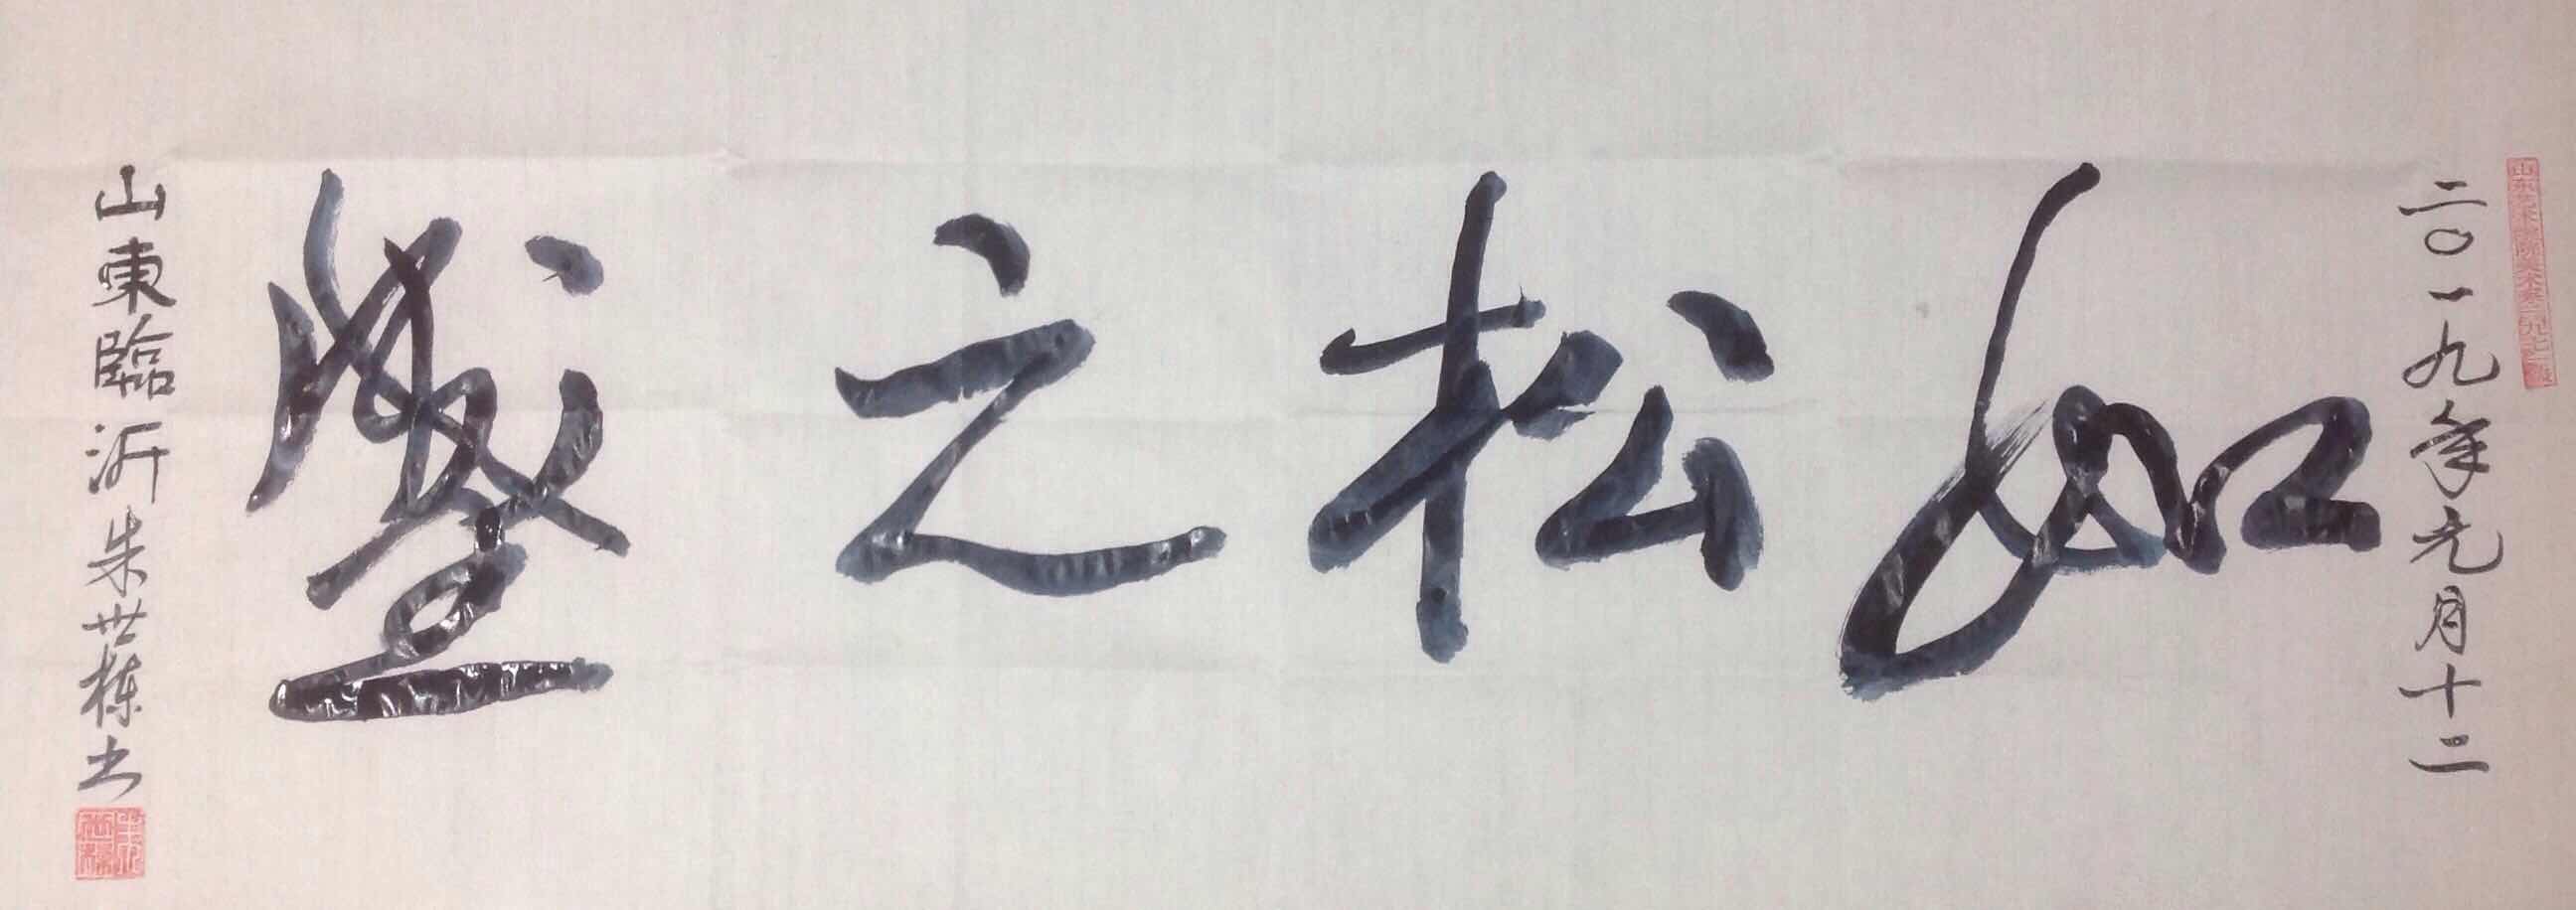 二〇一九年元月十二
如松之盛
山東臨沂朱世棟书